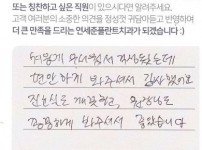 또는 칭찬하고 싶은 직원이 있으시다면 알려주세요.
고객 여러분의 소중한 의견을 정성껏 귀담아듣고 반영하며
더 큰 만족을 드리는 연세준플란트치과가 되겠습니다 :)
편안하게 봐주셔서 감사했어요
친절하 깨끗하고, 원장님도
꼼꼼하게 봐주셔서 좋았습니다